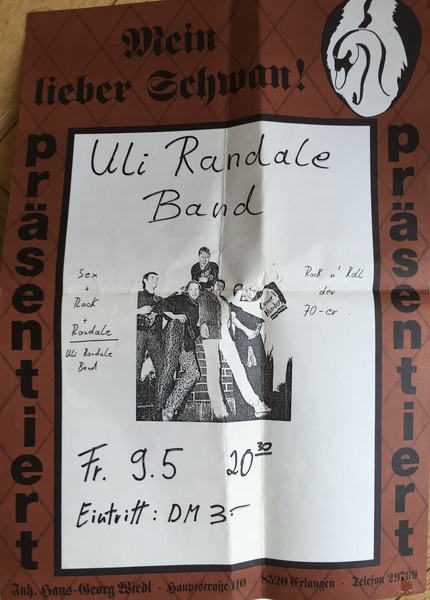 Mein
lieber Schwan!
präsentiert
präsentiert
Uli Randale
Band
Sex
+
Rock
+
Randale
Uli Randale
Band
Rock n' Roll
der
70-er.
Fr. 9.5 20³⁰
Eintritt: DM 3-
Inh. Hans-Georg Wiedl · Hauptstraße 110 · 8520 Erlangen · Telefon